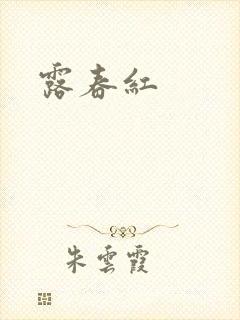 露春紅
朱雲霞